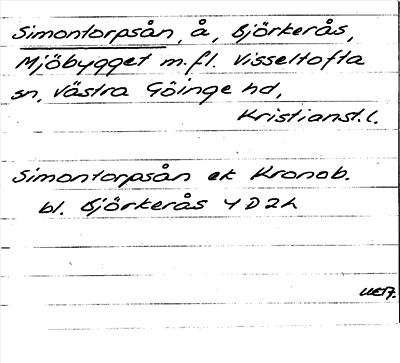 Simontorpsån, å, Björkerås,
Mjöbygget m.fl. Visseltofta
sn, Västra Göinge hd,
Kristianst.l.
Simontorpsån ek Kronob.
bl. Björkerås 4D2h